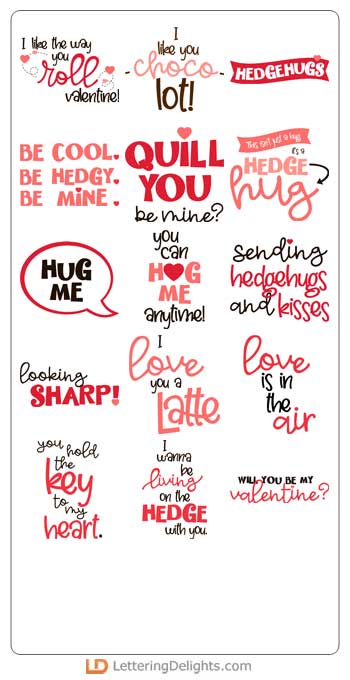 I like the way
you
roll
valentine!
I
like you
choco
lot!
HEDGEHUGS
BE COOL.
BE HEDGY.
BE MINE.
QUILL
YOU
be mine?
This isn't just a hug
it's a
HEDGE
hug
HUG
ME
you
can
HUG
ME
anytime!
sending
hedgehugs
and kisses
looking
SHARP!
I
love
you a
Latte
love
is in
the
air
you hold
the
key
to my
heart.
I
wanna
be
living
on the
HEDGE
with you.
WILL YOU BE MY
valentine?
LD LetteringDelights.com